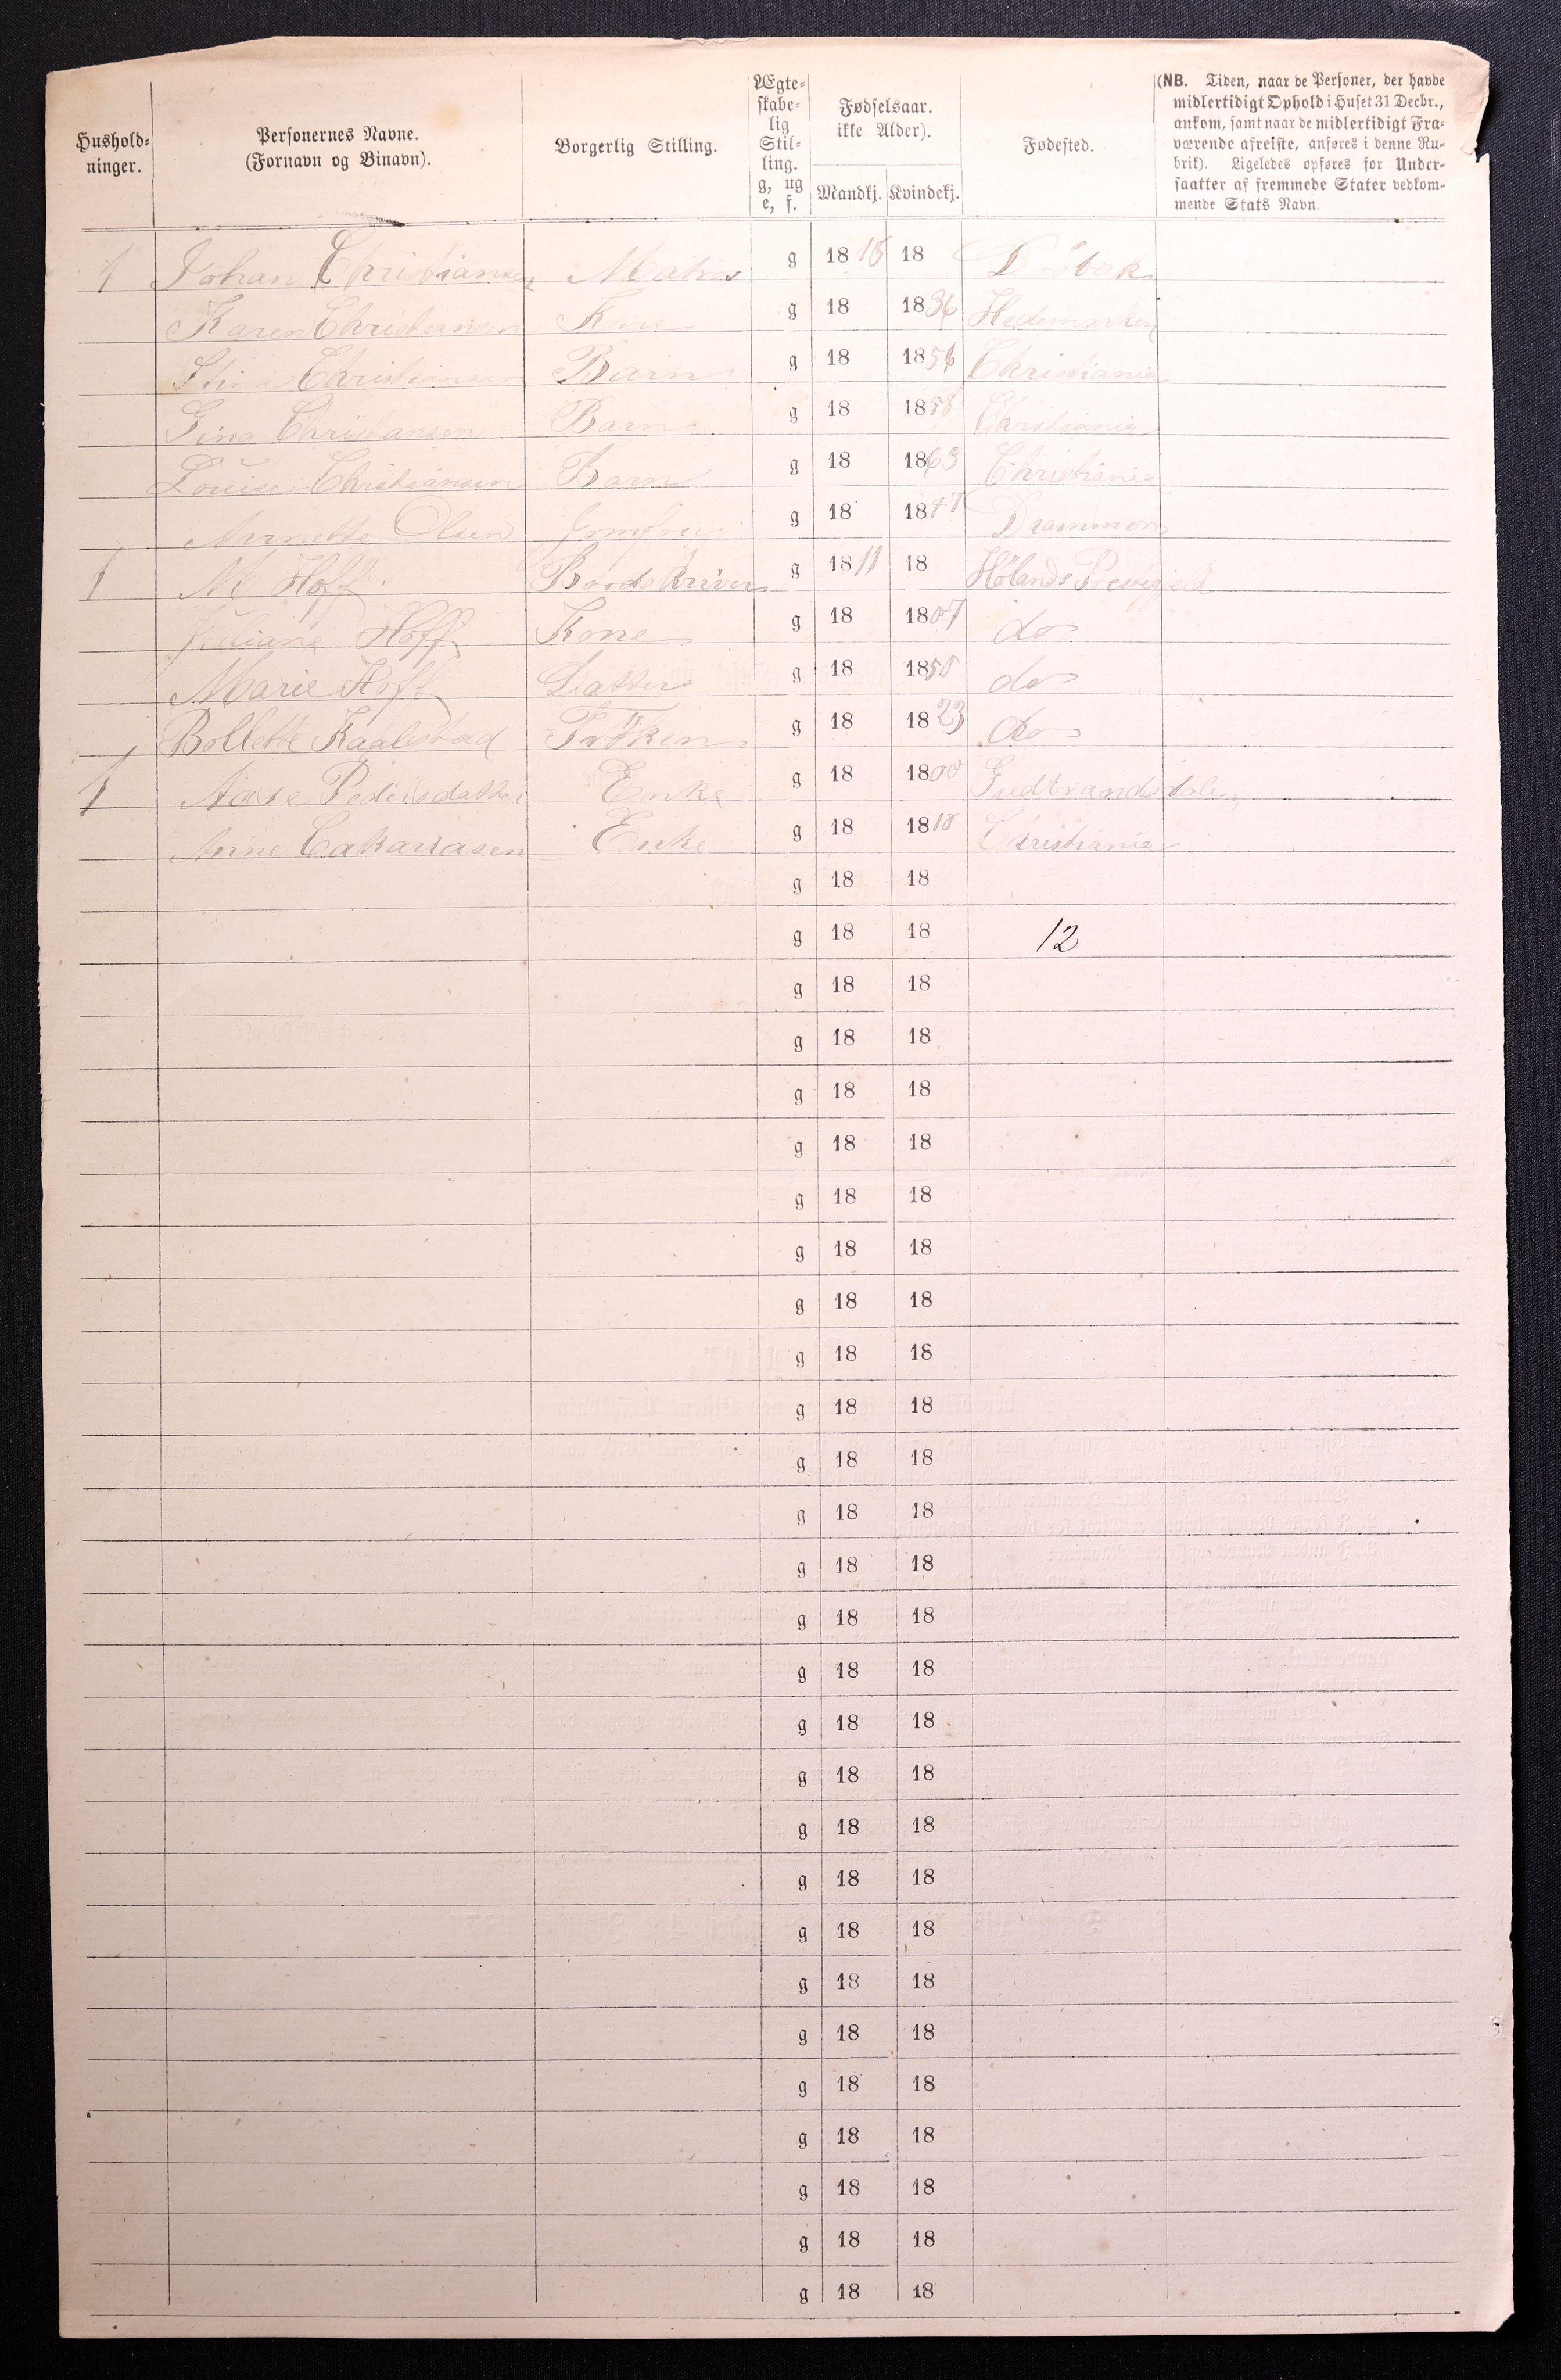 Hushold-
ninger.
Personernes Navne.
(Fornavn og Binavn).
Borgerlig Stilling.
Ægte-
skabe-
lig
Stil-
ling.
g, ug
e, f.
Fødselsaar.
ikke Alder).
Mandkj. Kvindekj.
Fødested.
(NB. Tiden, naar de Personer, der havde
midlertidigt Ophold i Huset 31 Decbr.,
ankom, samt naar de midlertidigt Fra-
værende afreiste, anføres i denne Ru-
brik). Ligeledes opføres for Under-
saatter af fremmede Stater vedkom-
mende Stats Navn.
1 Johan Christiansen Matros g 1818 18 Dröbak
Karen Christiansen Kone g 18 1836 Hedemarken
Stina Christiansen Barn g 18 1856 Christiania
Gina Christansen Barn g 18 1858 Christiania
Louise Christiansen Barn g 18 1863 Christiania
Annette Olsen Jomfru g 18 18 Drammen
1 M Hoff g 1811 18 Hölands Prestegjeld
Juliane Hoff Kone g 18 1807 do
Marie Hoff Datter g 18 1850 do
Bollette Kaalstad Fröken g 18 1823 do
1 Aase Pedersdatter Enke g 18 1800 Gudbrandsdalen
Anne Enke g 18 1818 Christiania
g 18 18
g 18 18 12
g 18 18
g 18 18
g 18 18
g 18 18
g 18 18
g 18 18
g 18 18
g 18 18
g 18 18
g 18 18
g 18 18
g 18 18
g 18 18
g 18 18
g 18 18
g 18 18
g 18 18
g 18 18
g 18 18
g 18 18
g 18 18
g 18 18
g 18 18
g 18 18
g 18 18
g 18 18